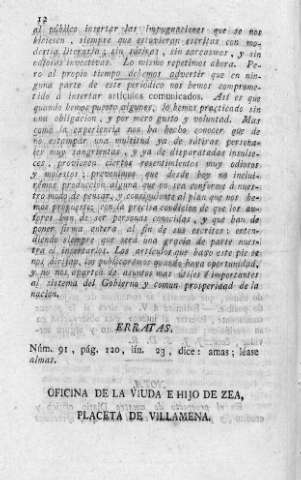 12
al público insertar las impugnaciones que se nos
hiciesen, siempre que estuvieran escritas con mo-
destia literaria; sin sátiras, sin sarcasmos, y sin
odiosas invectivas. Lo mismo repetimos ahora. Pe-
ro al propio tiempo debemos advertir que en nin-
guna parte de este periodico nos hemos comprome-
tido á insertar artículos comunicados. Así es que
quando hemos puesto algunos, lo hemos practicado sin
una obligacion, y por mero gusto y voluntad. Mas
como la experiencia nos ha hecho conocer que de
no estampar una multitud ya de sátiras persona-
les muy sangrientas, y ya de disparatadas insulse-
ces, provienen ciertos resentimientos muy odiosos
y molestos; prevenimos que desde hoy no inclui-
rémos produccion alguna que no sea conforme á nues-
tro modo de pensar, y consiguiente al plan que nos he-
mos propuesto; con la precisa condicion de que los au-
tores han de ser personas conocidas, y que han de
poner firma entera al fin de sus escritos: enten-
diendo siempre que será una gracia de parte nues-
tra el insertarlos. Los artículos que baxo este pie se
nos dirijan, los publicarémos quando haya oportunidad,
y no nos aparten de asuntos mas útiles é importantes
al sistema del Gobierno y comun prosperidad de la
nacion.
ERRATAS.
Núm. 91, pág. 120, lín. 23, dice: amas; léase
almas.
OFICINA DE LA VIUDA E HIJO DE ZEA,
PLACETA DE VILLAMENA.